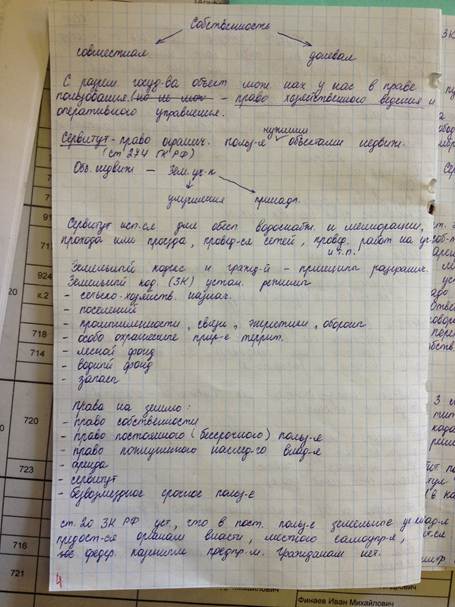 Собственность
совместная долевая
С разреш. госуд-ва объект мож. нах. у нас в праве
пользования, - право хозяйственного ведения и
оперативного управления.
Сервитут - право огранич. польз-я чужими объектами недвиж.
(ст 274 ГК РФ)
Объ. недвиж - Зем. уч-к
улучшения принадл.
Сервитут исп-ся для обесп. водоснабж. и мелиорации,
прохода или проезда, провед-ся сетей, провед. работ на уч.
и т.п.
Земельный кодекс и гражд-й - принципы разгранич.
Земельный код. (ЗК) устан. режимы
- сельско-хозяйств. назнач.
- поселений
- промышленности, связи, энергетики, обороны
- особо охраняемые прир-е террит.
- лесной фонд
- водный фонд
- запасы
Права на землю:
- право собственности
- право постоянного (бессрочного) польз-я
- право пожизненного наслед-го влад-я
- аренда
- сервитут
- безвозмездное срочное польз-е
ст. 20 ЗК РФ уст, что в пост. польз-е земельные уч.
предост-ся органам власти, местного самоупр-я,
федер. казенным предпр-м. Гражданам нет.
4
718
714
720
723
716
721
924
к.2
Финаев Иван Михайлович